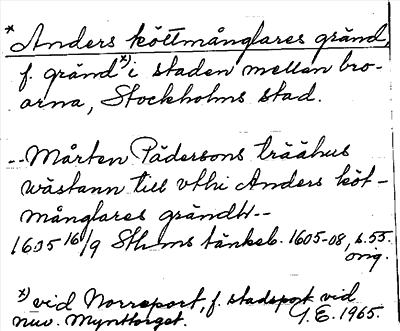 * Anders köttmånglares gränd,
f. gränd x) i staden mellan bro-
arna, Stockholms stad.
-- Mårten Pädersons träähus
wästann till vthi Anders köt-
månglares grändh --
1605 16/9 Sthms tänkeb. 1605-08, s. 55.
orig.
x) vid Norreport, f. stadsport vid
nuv. Mynttorget.
Y.E. 1965.